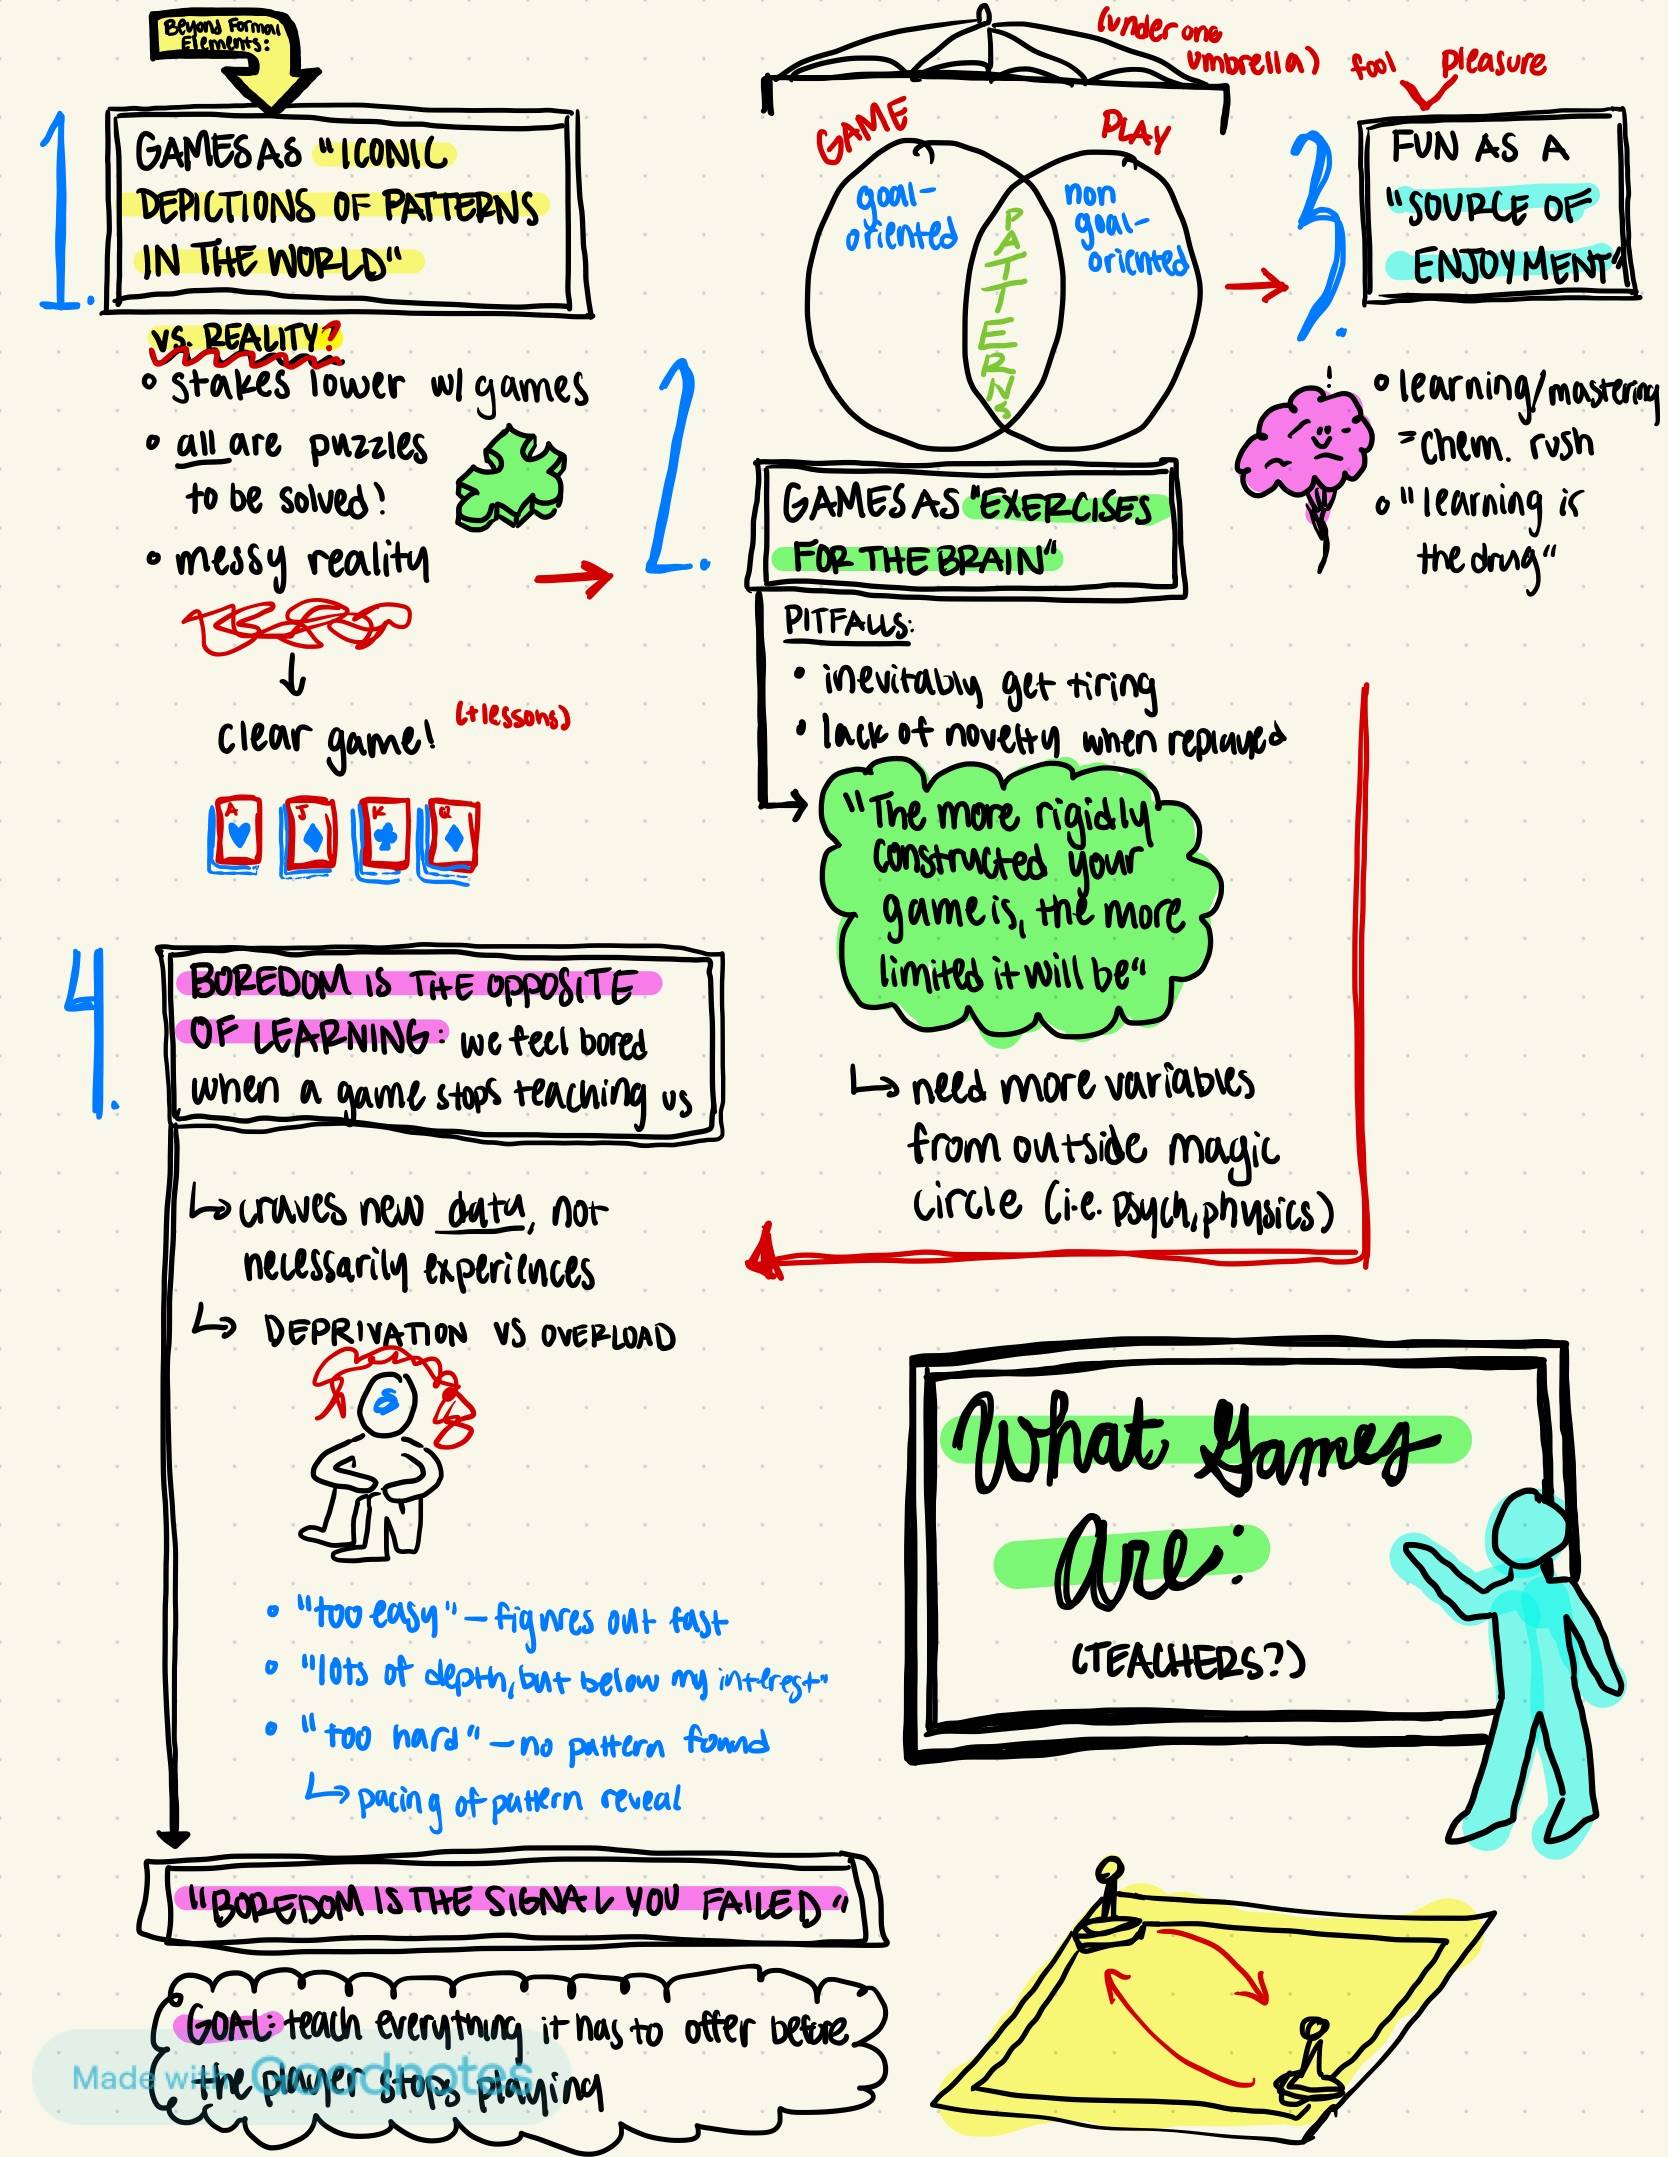 Beyond Formal
Elements:
1.
GAMES AS "ICONIC
DEPICTIONS OF PATTERNS
IN THE WORLD"
vs. REALITY?
• stakes lower w/ games
• all are puzzles
to be solved!
• messy reality
clear game! (+lessons)
A
J
K
Q
(under one
umbrella)
GAME
PLAY
goal-
oriented
PATTERNS
non
goal-
oriented
2.
GAMES AS "EXERCISES
FOR THE BRAIN"
PITFALLS:
• inevitably get tiring
• lack of novelty when replayed
"The more rigidly
constructed your
game is, the more
limited it will be"
↳ need more variables
from outside magic
circle (i.e. psych, physics)
fool pleasure
3.
FUN AS A
"SOURCE OF
ENJOYMENT"
• learning/mastering
=chem. rush
• "learning is
the drug"
4.
BOREDOM IS THE OPPOSITE
OF LEARNING: we feel bored
when a game stops teaching us
↳ craves new data, not
necessarily experiences
↳ DEPRIVATION VS OVERLOAD
• "too easy" – figures out fast
• "lots of depth, but below my interest"
• "too hard" – no pattern found
↳ pacing of pattern reveal
"BOREDOM IS THE SIGNAL YOU FAILED"
GOAL: teach everything it has to offer before
the player stops playing
Made with Goodnotes
What Games
Are:
(TEACHERS?)